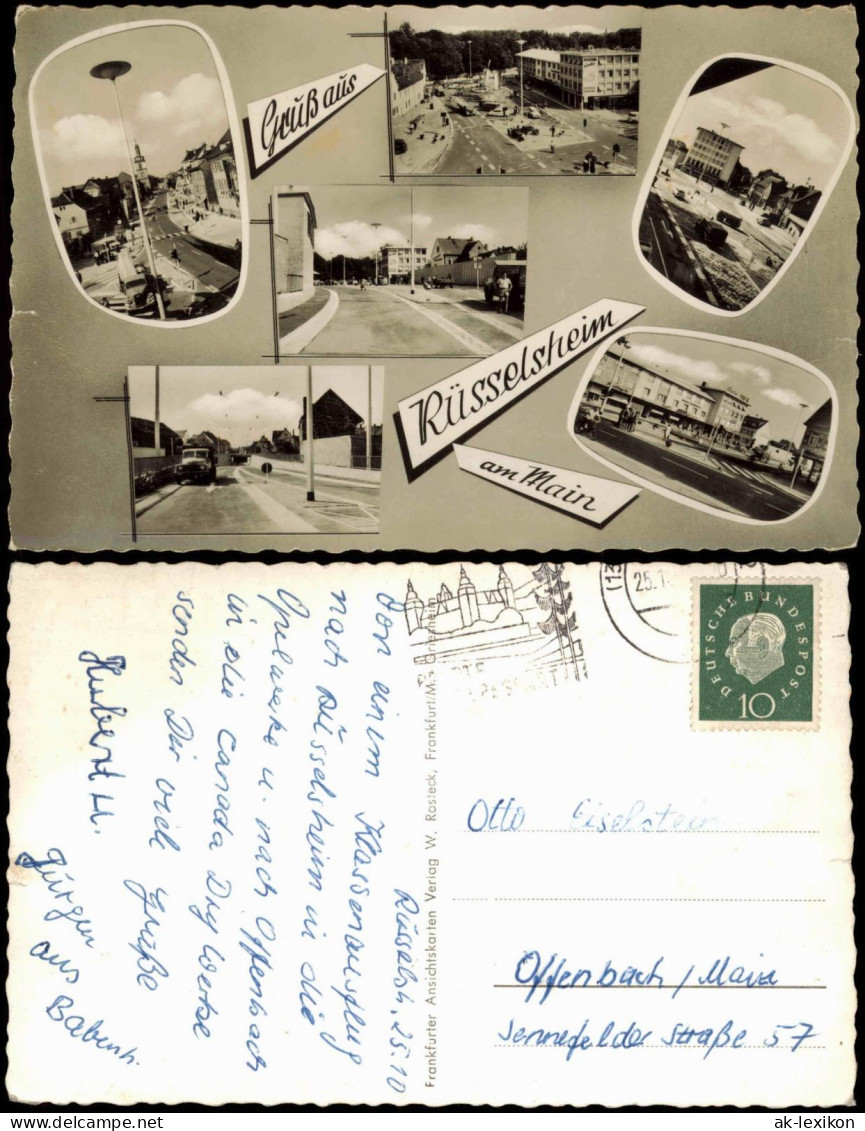 Gruß aus
Rüsselsheim
am Main
25.1
DEUTSCHE BUNDESPOST
10
Rüsselsh. 25.10
Von einem Klassenausflug
nach Rüsselsheim in die
Opelwerke u. nach Offenbach
in die Canada Dry Werke
senden Dir viele Grüße
Hubert H.
Jürgen aus Babenh.
Frankfurter Ansichtskarten Verlag W. Rosteck, Frankfurt/M.-Griesheim
Otto Eiselstein
Offenbach/Main
Sennefelder straße 57
ak-lexikon